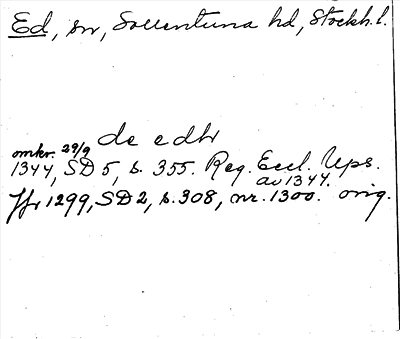 Ed, sn, Sollentuna hd, Stockh. l.
de edh
omkr. 29/9
1344, SD 5, s. 355. Reg. Eccl. Ups.
av 1344.
Jfr 1299, SD 2, s. 308, nr. 1300. orig.